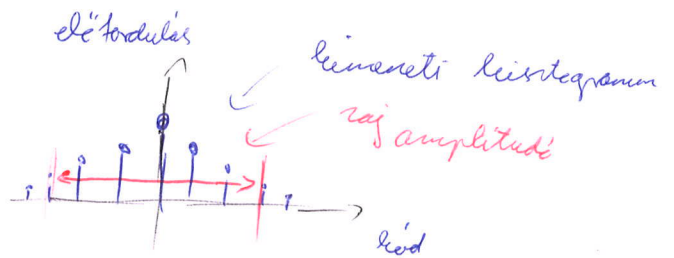 előfordulás
kimeneti hisztogramm
zaj amplitúdó
kód